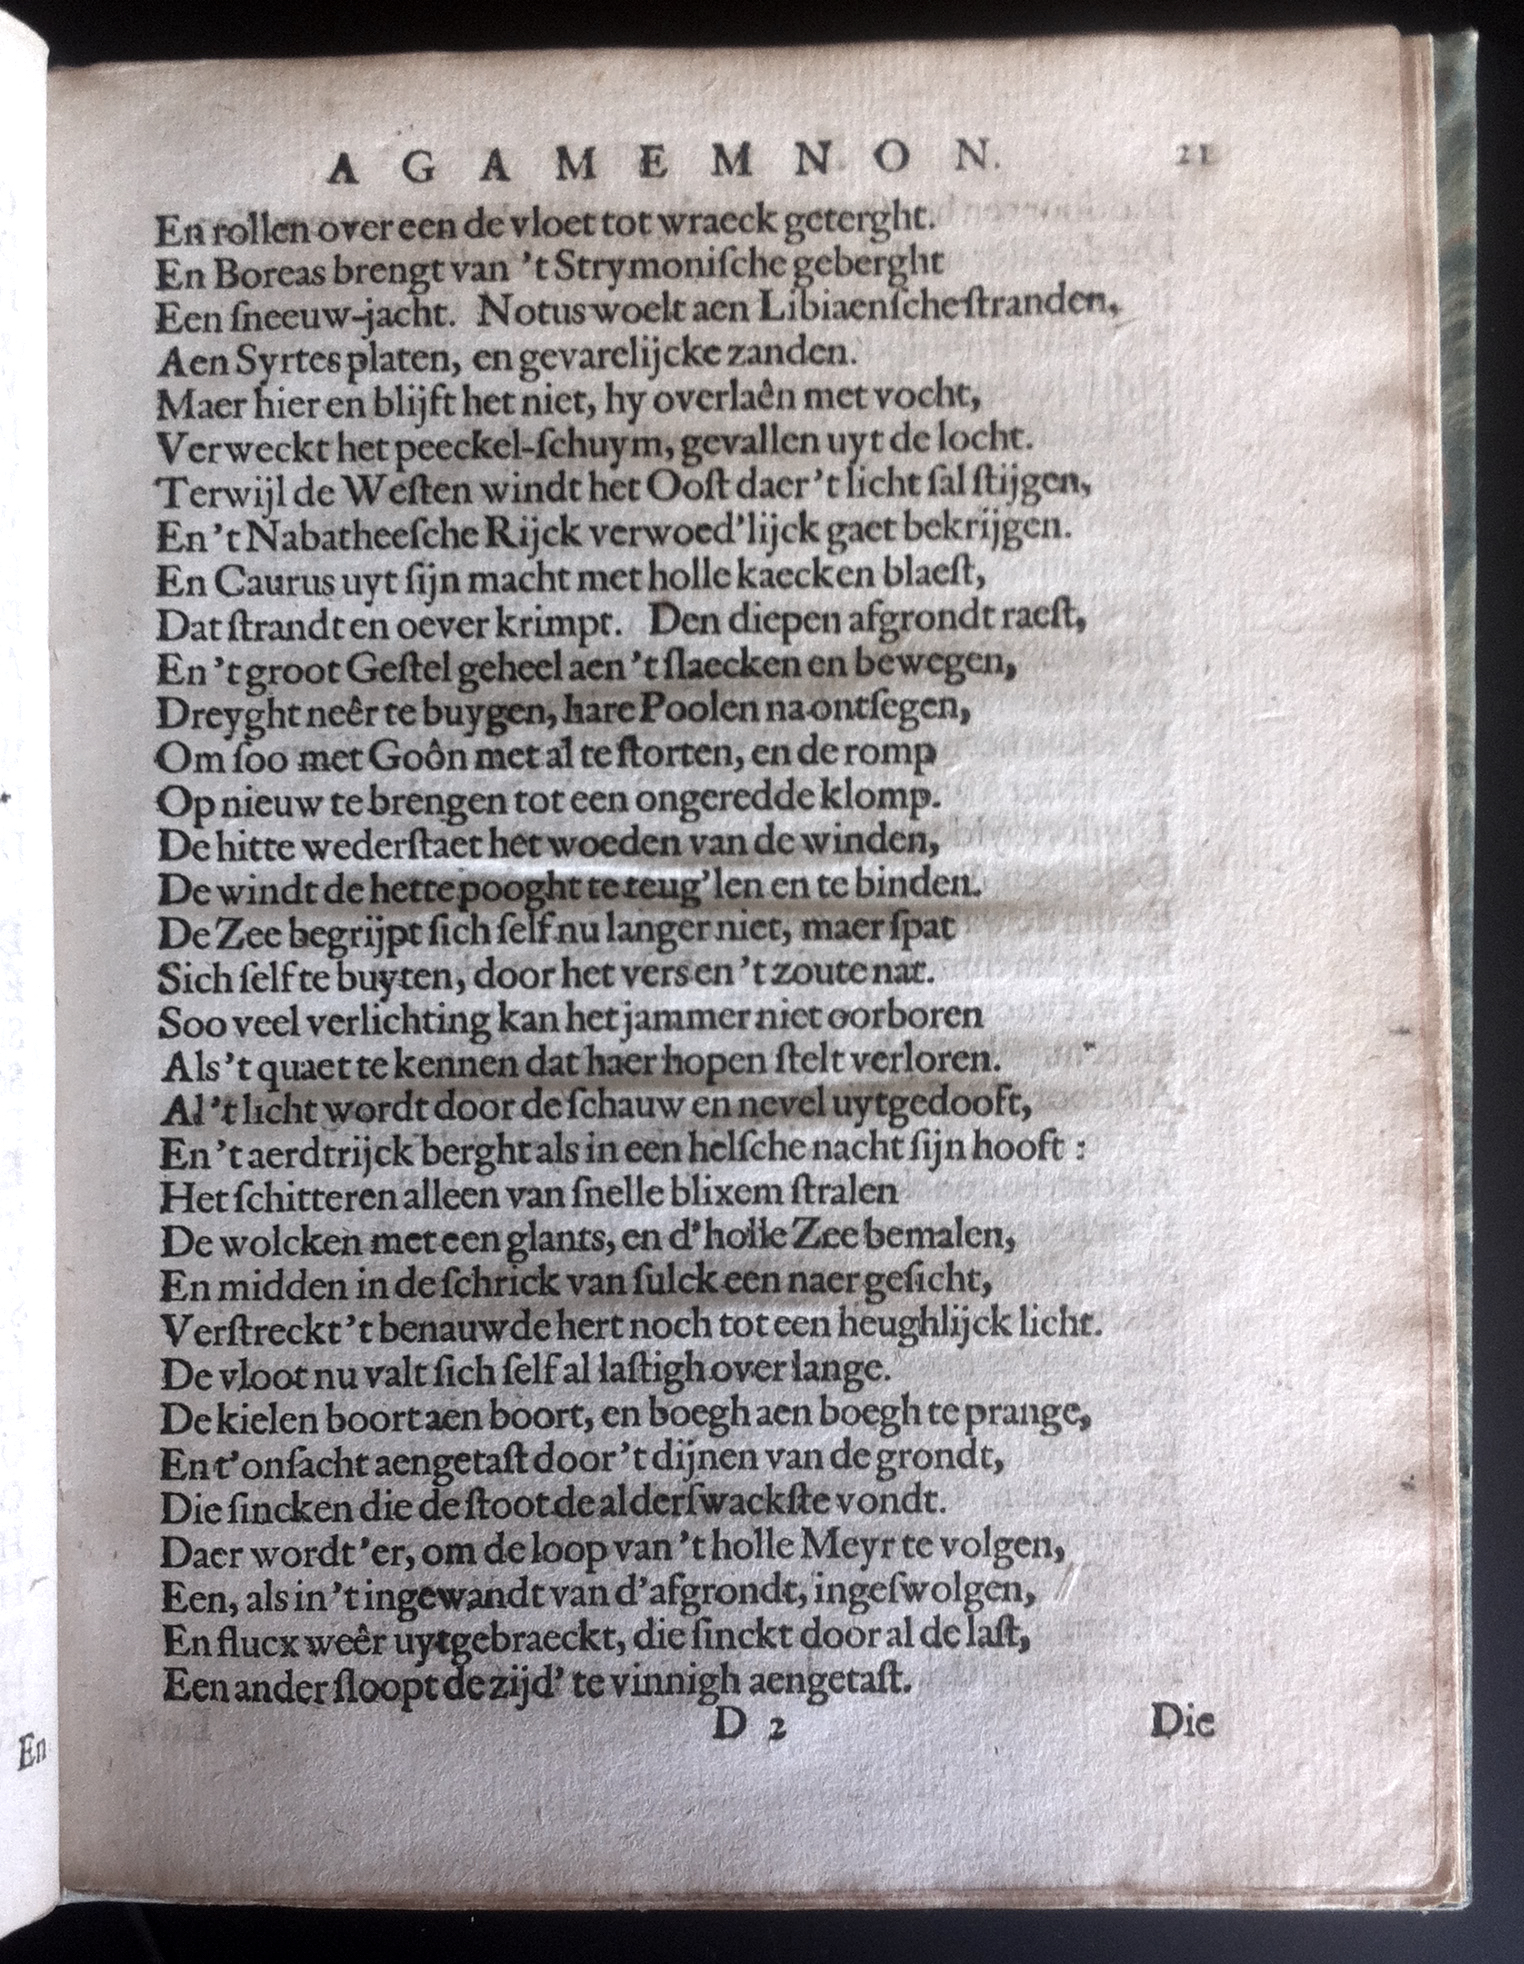 AGAMEMNON. 21
En rollen over een de vloet tot wraeck geterght.
En Boreas brengt van 't Strymoniſche geberght
Een ſneeuw-jacht. Notus woelt aen Libiaenſche ſtranden,
Aen Syrtes platen, en gevarelijcke zanden.
Maer hier en blijft het niet, hy overlaên met vocht,
Verweckt het peeckel-ſchuym, gevallen uyt de locht.
Terwijl de Weſten windt het Ooſt daer 't licht ſal ſtijgen,
En 't Nabatheeſche Rijck verwoed'lijck gaet bekrijgen.
En Caurus uyt ſijn macht met holle kaecken blaeſt,
Dat ſtrandt en oever krimpt. Den diepen afgrondt raeſt,
En 't groot Geſtel geheel aen 't ſlaecken en bewegen,
Dreyght neêr te buygen, hare Poolen na ontſegen,
Om ſoo met Goôn met al te ſtorten, en de romp
Op nieuw te brengen tot een ongeredde klomp.
De hitte wederſtaet het woeden van de winden,
De windt de hette pooght te teug'len en te binden.
De Zee begrijpt ſich ſelf nu langer niet, maer ſpat
Sich ſelf te buyten, door het vers en 't zoute nat.
Soo veel verlichting kan het jammer niet oorboren
Als 't quaet te kennen dat haer hopen ſtelt verloren.
Al 't licht wordt door de ſchauw en nevel uytgedooft,
En 't aerdtrijck berght als in een helſche nacht ſijn hooft :
Het ſchitteren alleen van ſnelle blixem ſtralen
De wolcken met een glants, en d'holle Zee bemalen,
En midden in de ſchrick van ſulck een naer geſicht,
Verſtreckt 't benauwde hert noch tot een heughlijck licht.
De vloot nu valt ſich ſelf al laſtigh over lange.
De kielen boort aen boort, en boegh aen boegh te prange,
En t'onſacht aengetaſt door 't dijnen van de grondt,
Die ſincken die de ſtoot de alderſwackſte vondt.
Daer wordt 'er, om de loop van 't holle Meyr te volgen,
Een, als in 't ingewandt van d'afgrondt, ingeſwolgen,
En flucx weêr uytgebraeckt, die ſinckt door al de laſt,
Een ander ſloopt de zijd' te vinnigh aengetaſt.
D 2 Die
En